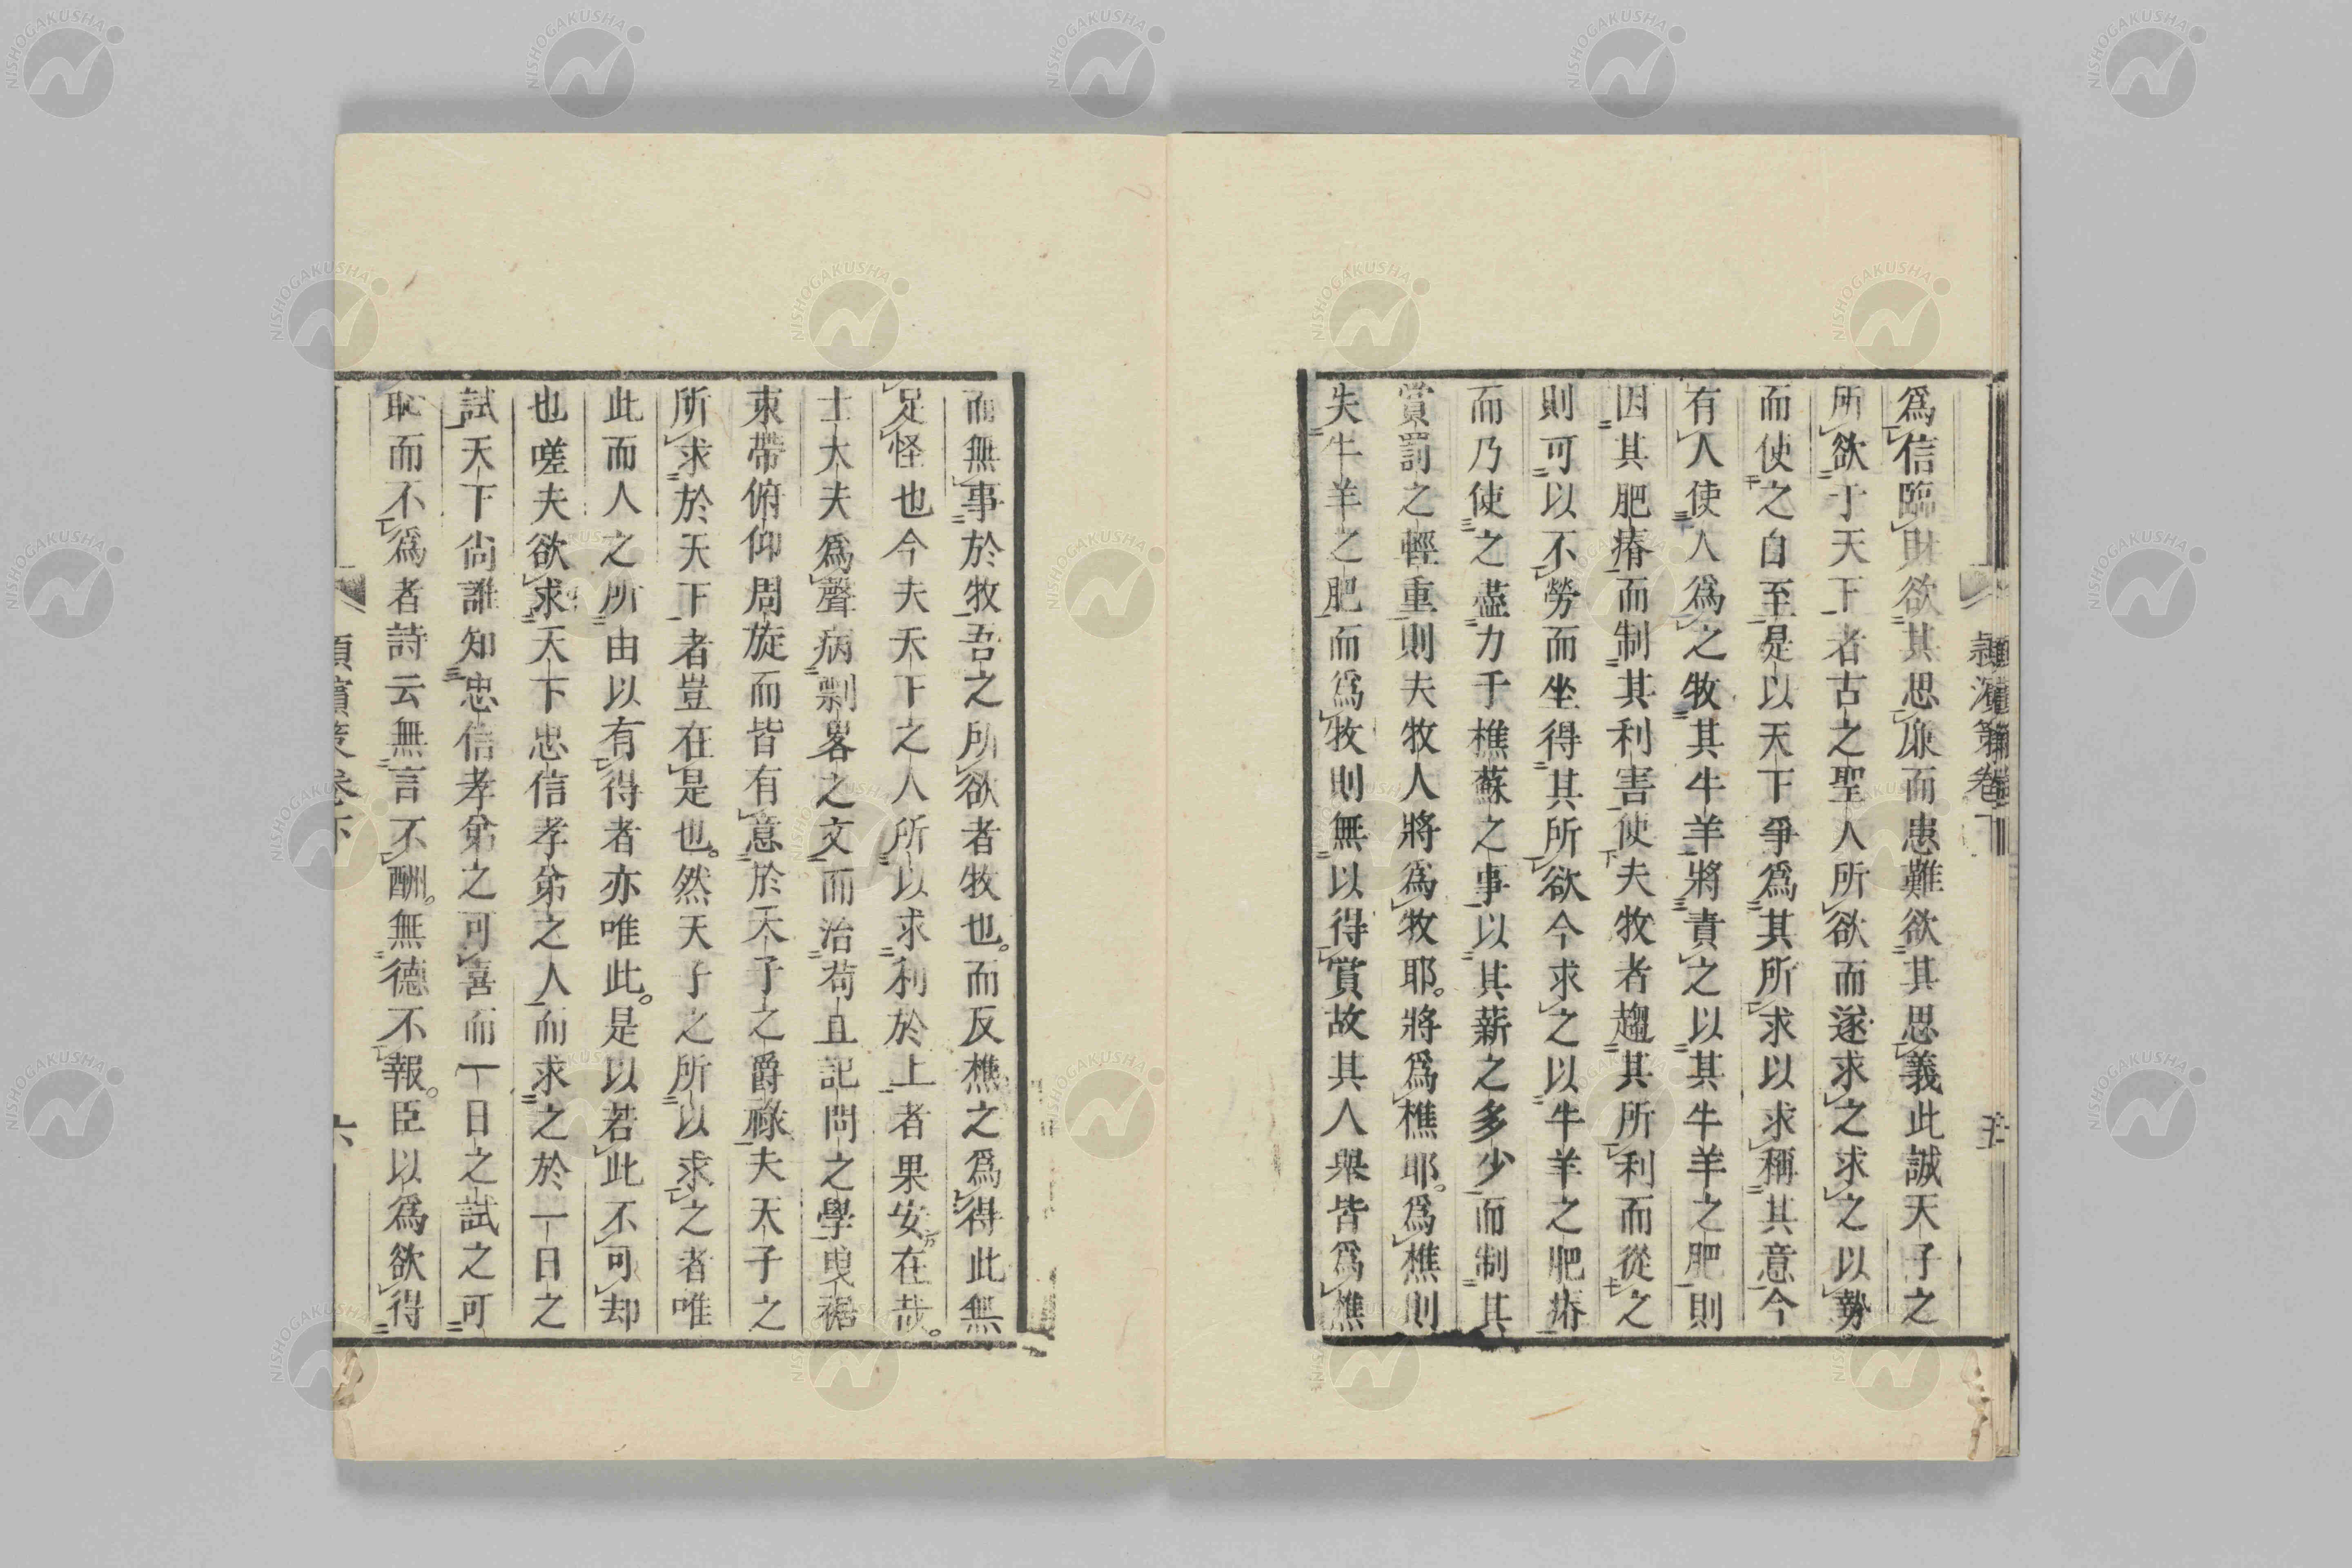 爲信臨財欲其思廉而患難欲其思義此誠天子之
所欲于天下者古之聖人所欲而遂求之求之以勢
而使之自至是以天下爭爲其所求以求稱其意今
有人使人爲之牧其牛羊將責之以其牛羊之肥則
因其肥瘠而制其利害使夫牧者趨其所利而從之
則可以不勞而坐得其所欲今求之以牛羊之肥瘠
而乃使之盡力于樵蘇之事以其薪之多少而制其
賞罰之輕重則夫牧人將爲牧耶。將爲樵耶。爲樵則
失牛羊之肥而爲牧則無以得賞故其人舉皆爲樵
而無事於牧吾之所欲者牧也。而反樵之爲得此無
足怪也今夫天下之人所以求利於上者果安在哉。
士大夫爲聲病剽畧之文而治苟且記問之學曳裾
束帶俯仰周旋而皆有意於天子之爵祿夫天子之
所求於天下者豈在是也。然天子之所以求之者唯
此而人之所由以有得者亦唯此。是以若此不可却
也嗟夫欲求天下忠信孝弟之人而求之於一日之
試天下尚誰知忠信孝弟之可喜而一日之試之可
恥而不爲者詩云無言不酬。無德不報。臣以爲欲得
潁濱策卷下
六
NISHOGAKUSHA